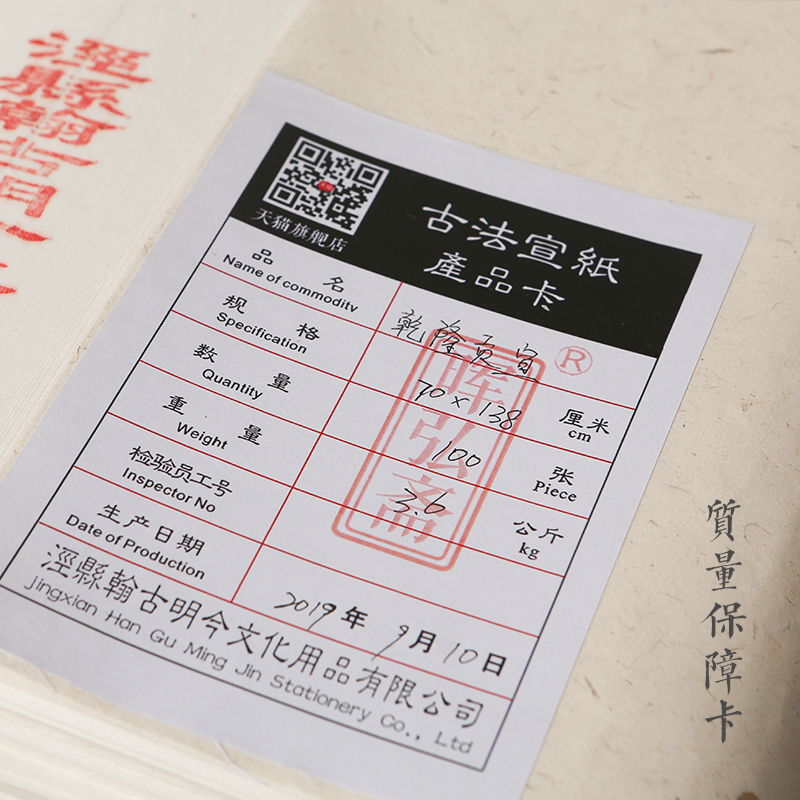 涇縣翰古明今
天猫旗舰店
古法宣紙
產品卡
品名
Name of commodity
乾隆贡宣
规格
Specification
70×138
厘米
cm
数量
Quantity
100
张
Piece
重量
Weight
3.6
公斤
kg
检验员工号
Inspector No
生产日期
Date of Production
2019年9月10日
晖弘斋
®
涇縣翰古明今文化用品有限公司
jingxian Han Gu Ming Jin Stationery Co., Ltd
質量保障卡